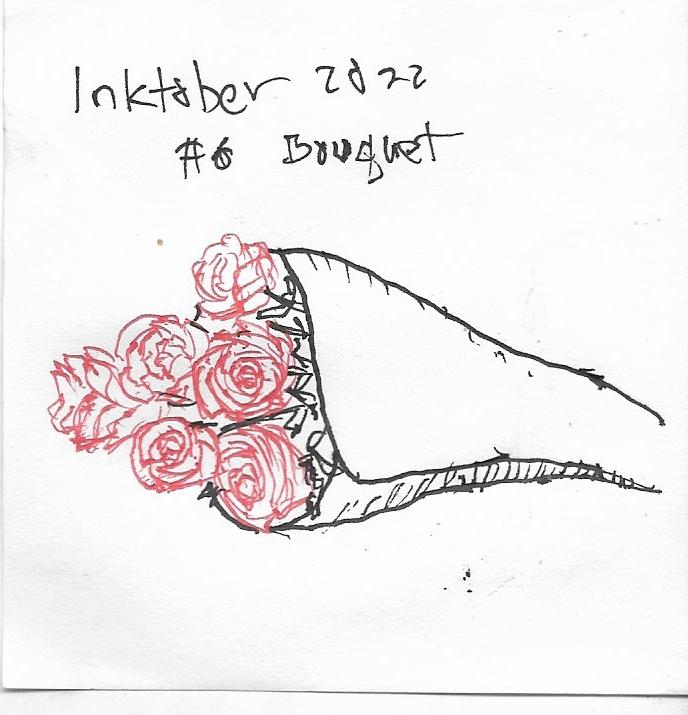 Inktober 2022
#6 Bouquet